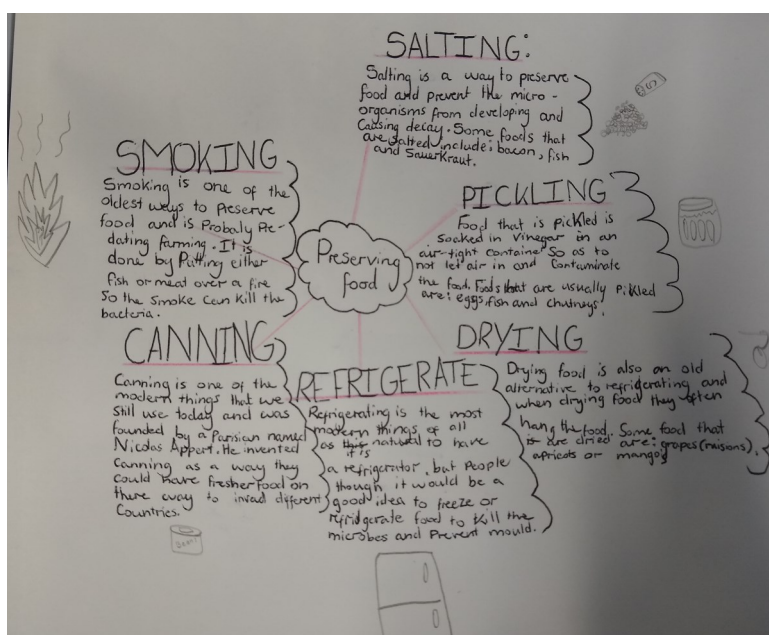 SALTING:
Salting is a way to preserve
food and prevent the micro-
organisms from developing and
Causing decay. Some foods that
are salted include; bacon, fish
and Sauerkraut.
SMOKING
Smoking is one of the
oldest ways to Preserve
food and is Probaly Pre-
dating farming. It is
done by Putting either
fish or meat over a fire
So the smoke can kill the
bacteria.
PICKLING
Food that is pickled is
soaked in vinegar in an
air-tight container so as to
not let air in and Contaminate
the food. Foods that are usually pickled
are: eggs, fish and chutneys.
Preserving
food
CANNING
Canning is one of the
modern things that we
still use today and was
founded by a Parisian named
Nicolas Appert. He invented
Canning as a way they
could have fresher food on
there way to invad different
Countries.
REFRIGERATE
Refrigerating is the most
modern things of all
as it is natural to have
a refrigerator, but People
though it would be a
good idea to freeze or
rfridgerate food to kill the
microbes and Prevent mould.
DRYING
Drying food is also an old
alternative to refrigerating and
when drying food they often
hang the food. Some food that
are dried are: grapes (raisons),
apricots or mango's